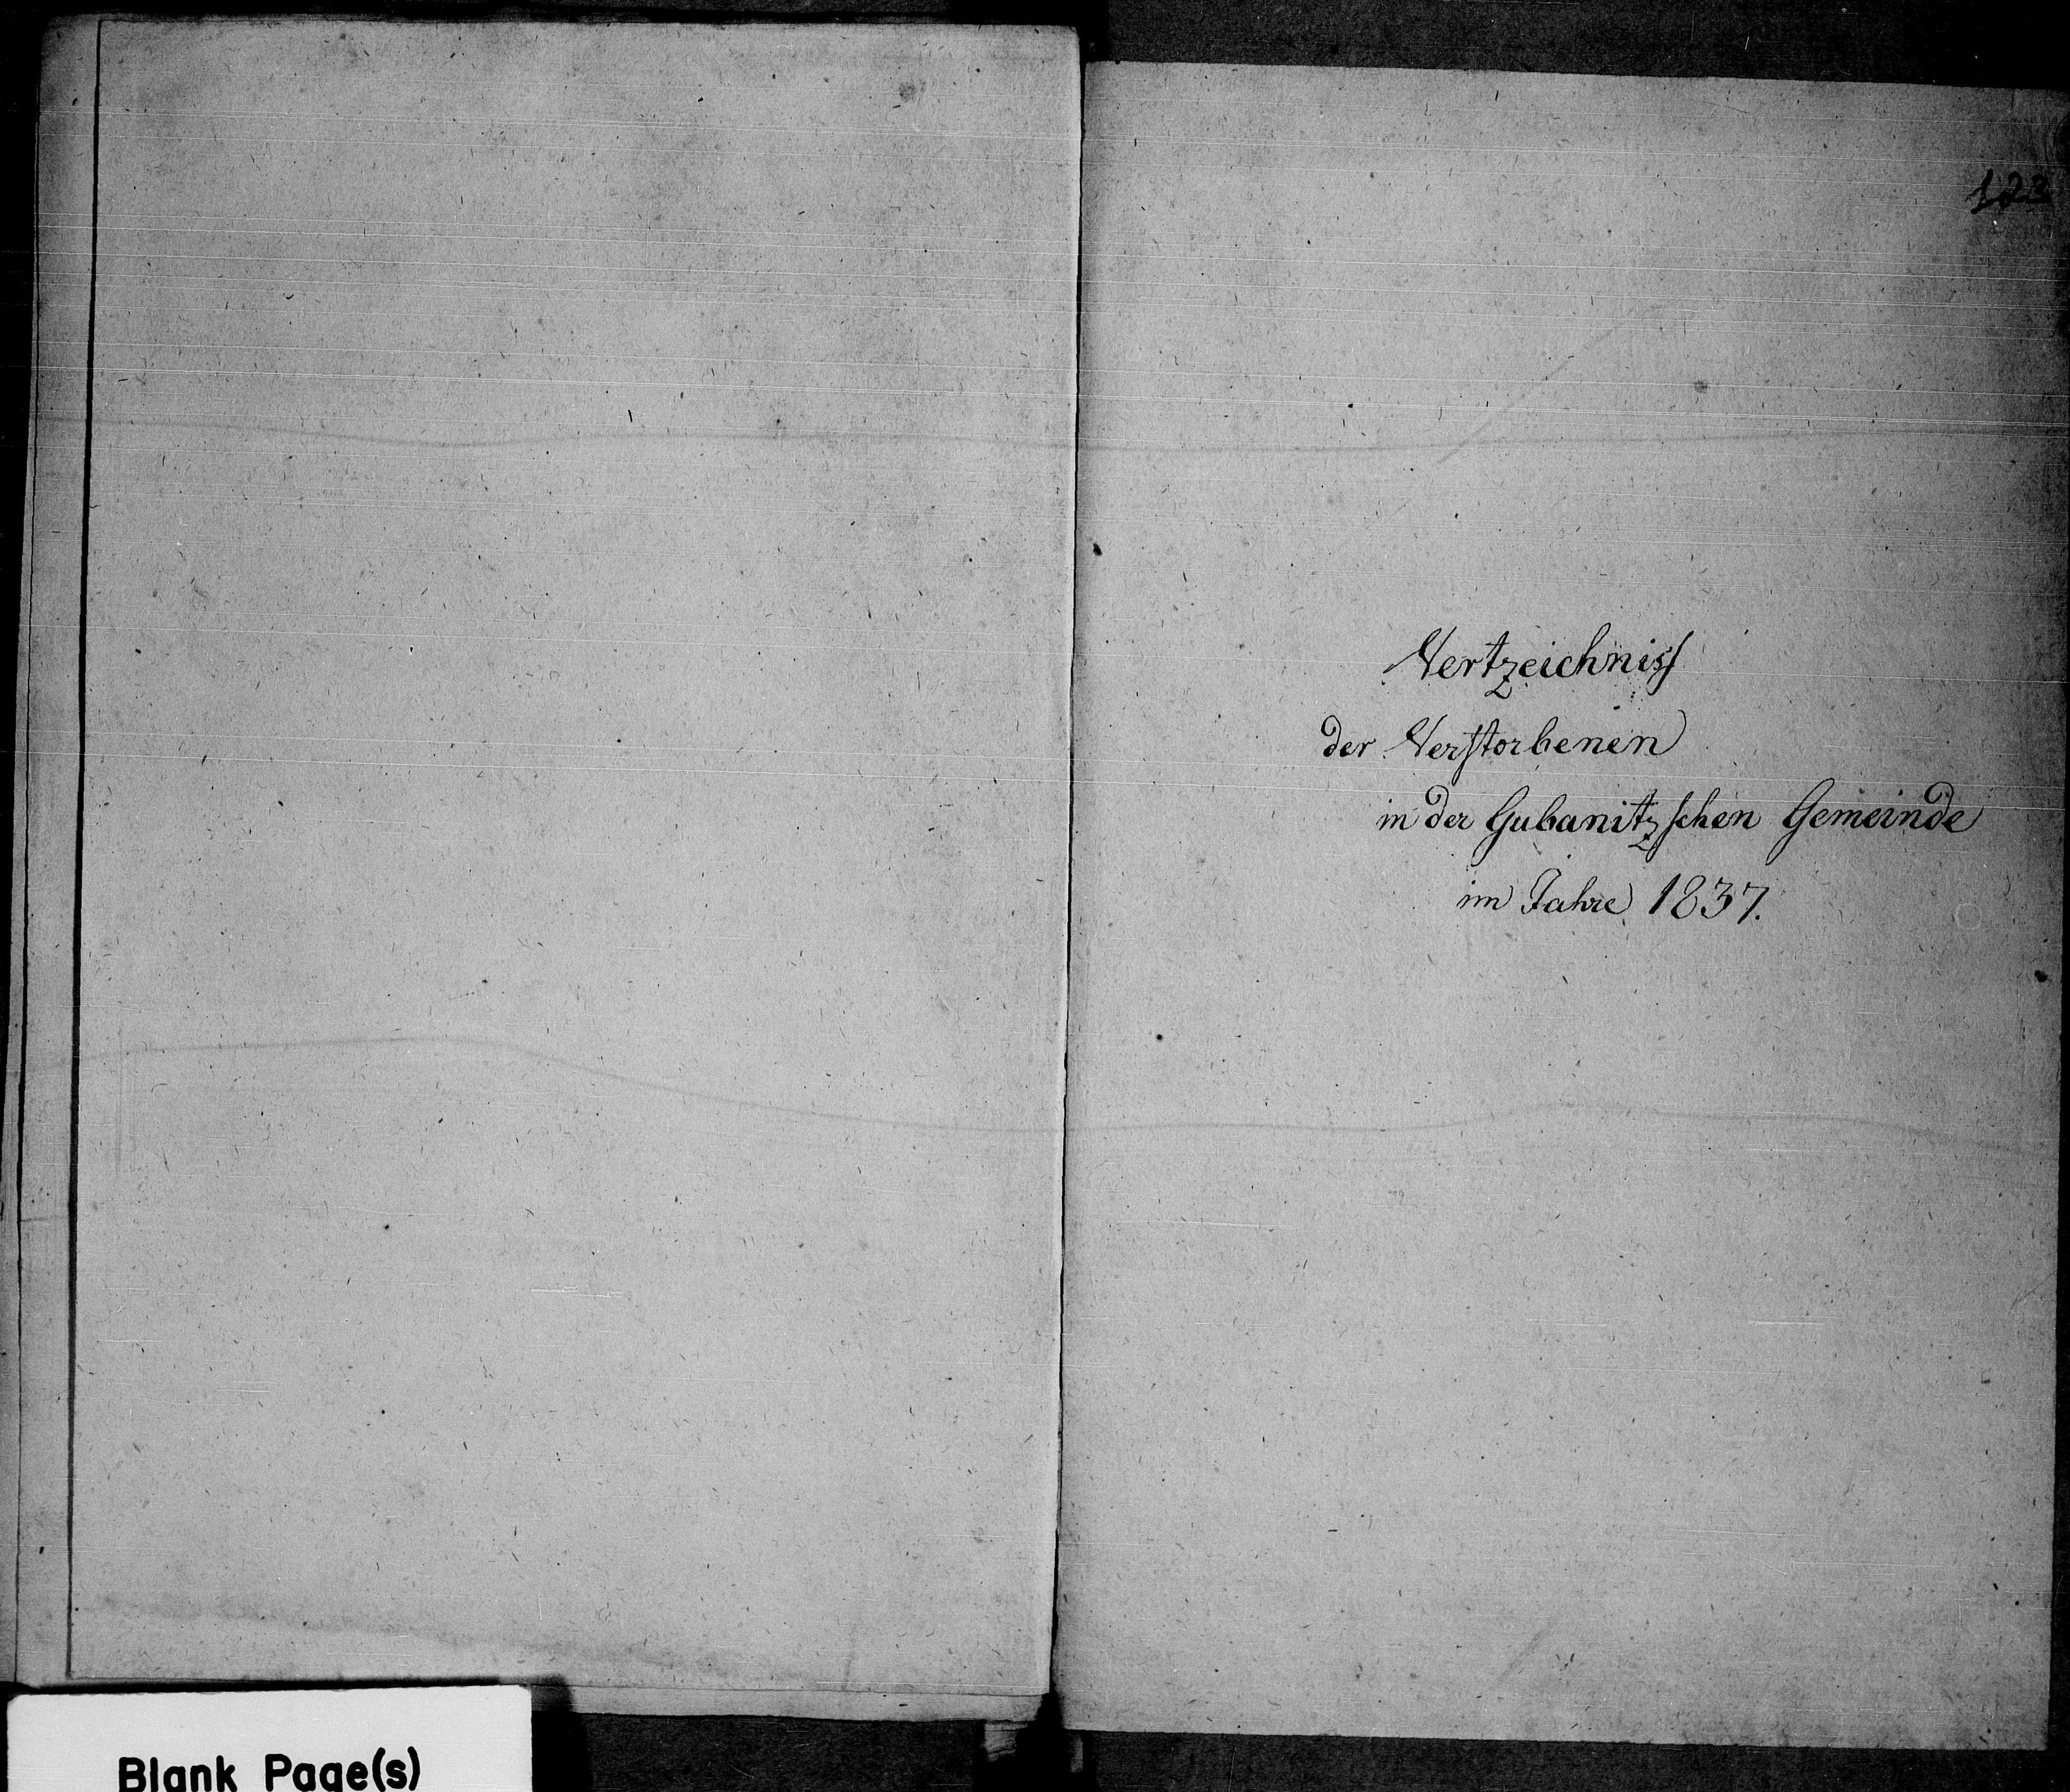 122
Vertzeichniss
der Verstorbenen
in der Gubanitzschen Gemeinde
im Jahre 1837.
Blank Page(s)